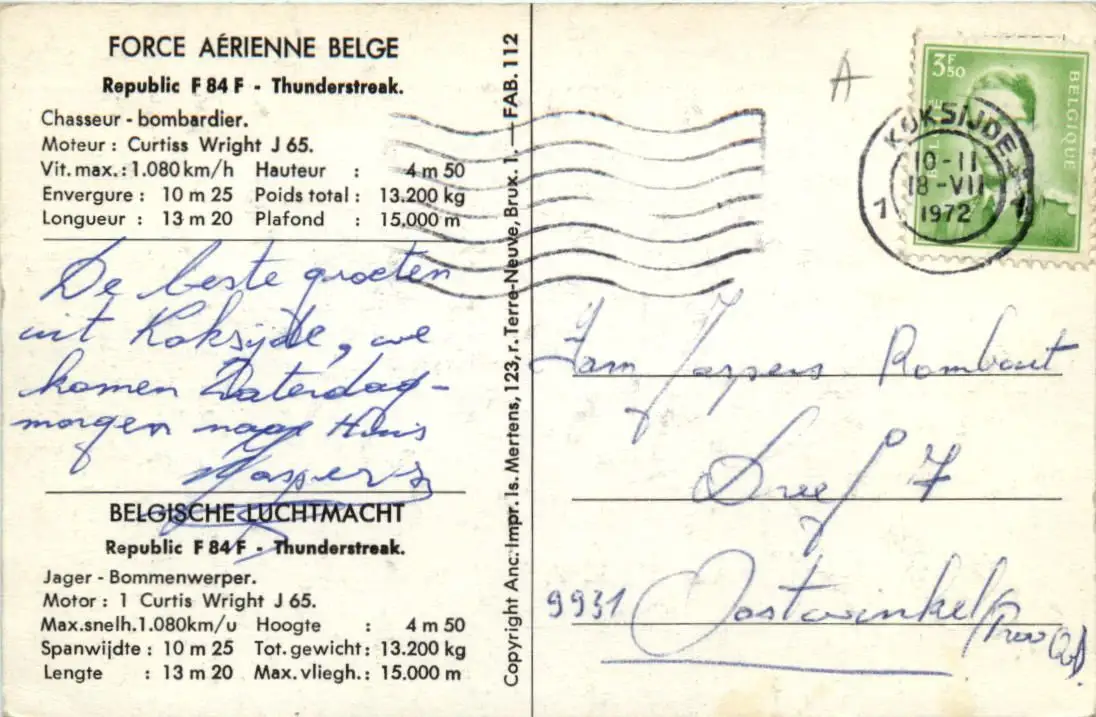 FORCE AÉRIENNE BELGE
Republic F 84 F - Thunderstreak.
Chasseur - bombardier.
Moteur : Curtiss Wright J 65.
Vit. max. : 1.080 km/h Hauteur : 4 m 50
Envergure : 10 m 25 Poids total : 13.200 kg
Longueur : 13 m 20 Plafond : 15.000 m
De beste groeten
uit Koksijde, we
komen Zaterdag-
morgen naar Huis
Jaspers
BELGISCHE LUCHTMACHT
Republic F 84 F - Thunderstreak.
Jager - Bommenwerper.
Motor : 1 Curtis Wright J 65.
Max.snelh.1.080km/u Hoogte : 4 m 50
Spanwijdte : 10 m 25 Tot. gewicht : 13.200 kg
Lengte : 13 m 20 Max. vliegh. : 15.000 m
Copyright Anc. Impr. Is. Mertens, 123, r. Terre-Neuve, Brux. 1. — FAB. 112
A
3 F 50
BELGIQUE
KOKSIJDE
10-11
18-VII
1972
1 1
Fam Jaspers Rombaut
Dreef 7
9931 Oostwinkel